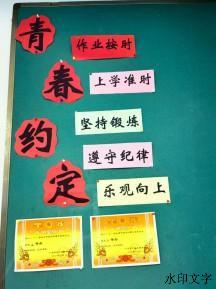 青春约定
作业按时
上学准时
坚持锻炼
遵守纪律
乐观向上
水印文字